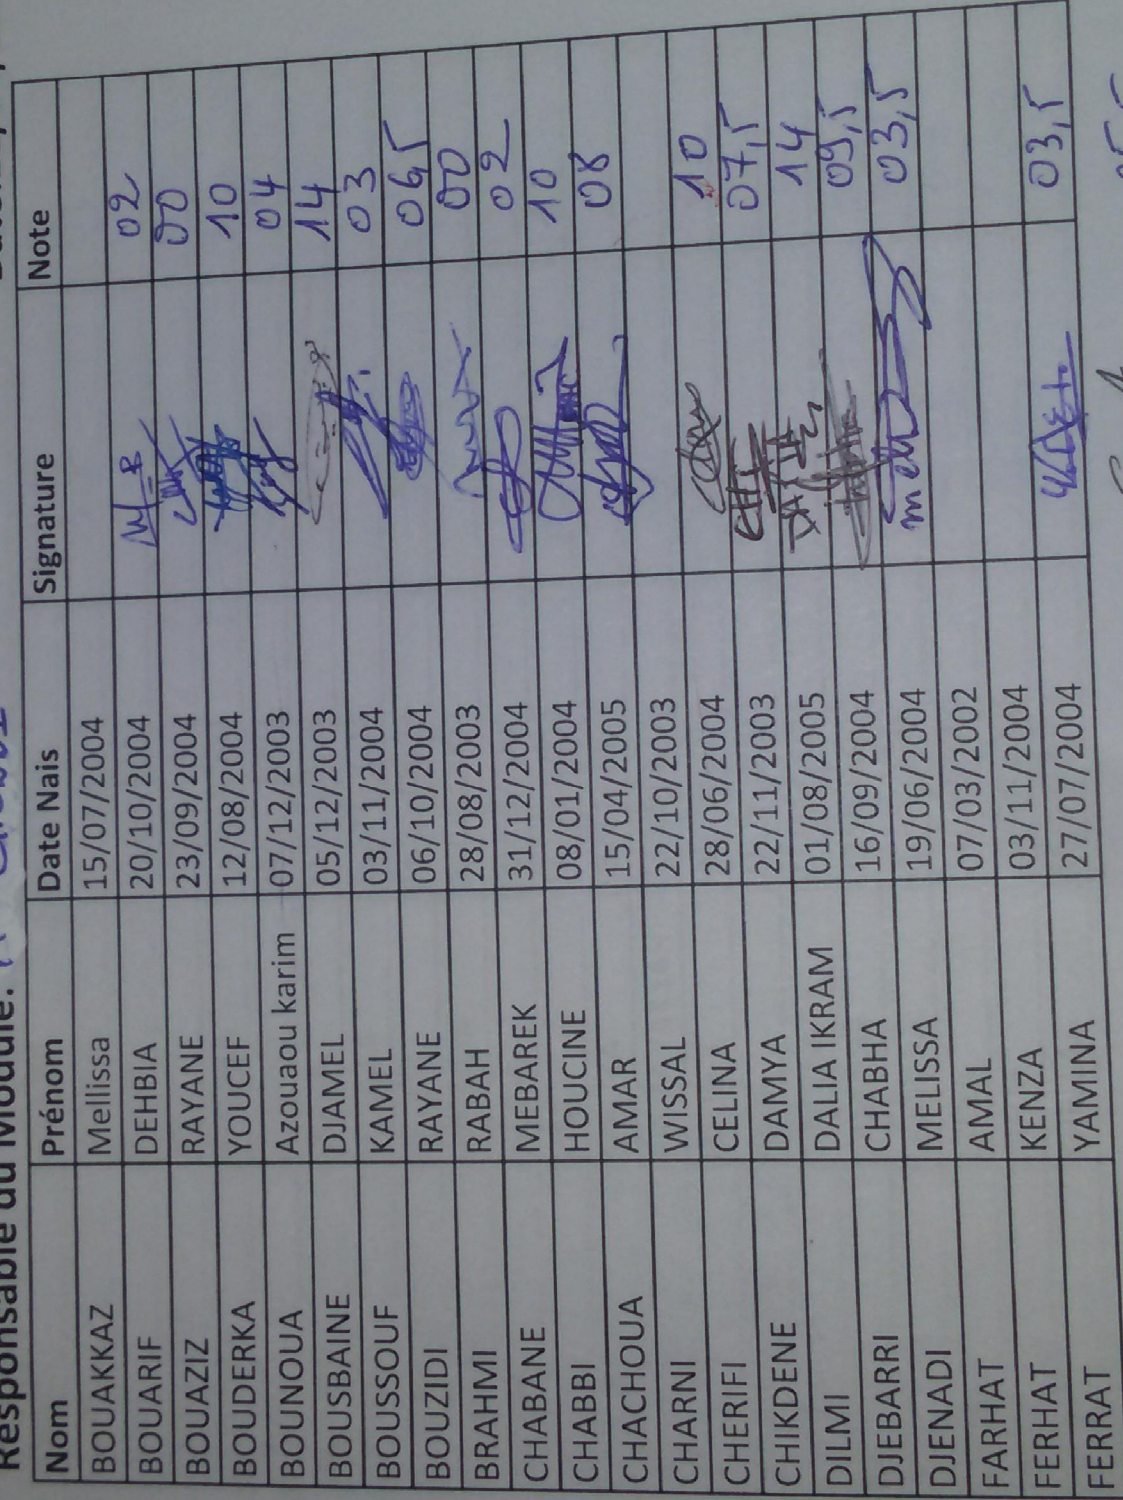 Responsable du Module:
Nom Prénom Date Nais Signature Note
BOUAKKAZ Mellissa 15/07/2004
BOUARIF DEHBIA 20/10/2004 02
BOUAZIZ RAYANE 23/09/2004 00
BOUDERKA YOUCEF 12/08/2004 10
BOUNOUA Azouaou karim 07/12/2003 04
BOUSBAINE DJAMEL 05/12/2003 14
BOUSSOUF KAMEL 03/11/2004 03
BOUZIDI RAYANE 06/10/2004 06,5
BRAHMI RABAH 28/08/2003 00
CHABANE MEBAREK 31/12/2004 02
CHABBI HOUCINE 08/01/2004 10
CHACHOUA AMAR 15/04/2005 08
CHARNI WISSAL 22/10/2003
CHERIFI CELINA 28/06/2004 10
CHIKDENE DAMYA 22/11/2003 07,5
DILMI DALIA IKRAM 01/08/2005 14
DJEBARRI CHABHA 16/09/2004 09,5
DJENADI MELISSA 19/06/2004 03,5
FARHAT AMAL 07/03/2002
FERHAT KENZA 03/11/2004
FERRAT YAMINA 27/07/2004 03,5